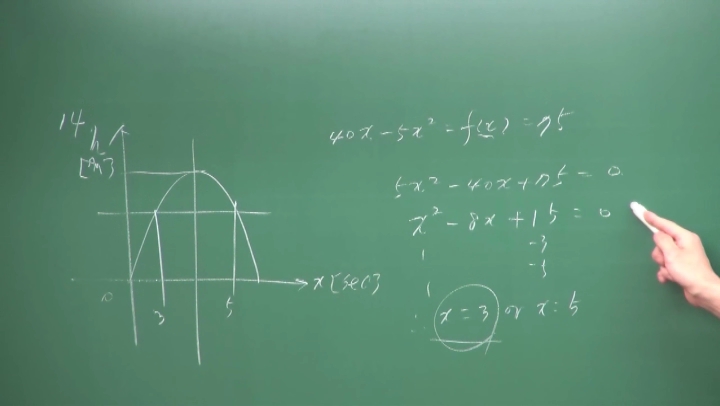 14
h
[m]
0
3
5
x [sec]
40x - 5x² = f(x) = 75
5x² - 40x + 75 = 0
x² - 8x + 15 = 0
1 -3
1 -5
∴ x = 3 or x = 5